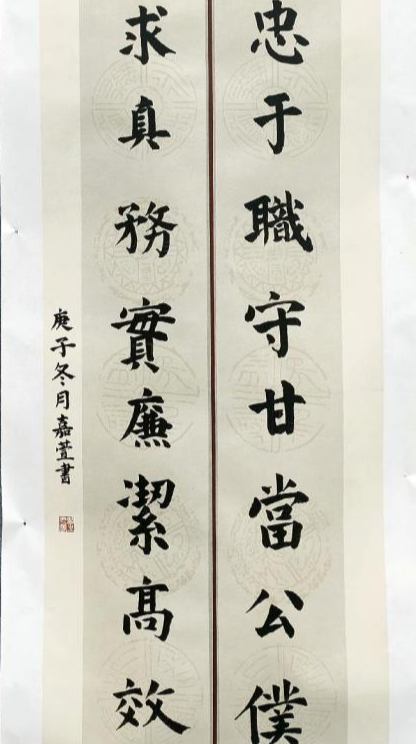 忠于職守甘當公僕
求真務實廉潔高效
庚子冬月嘉萱書